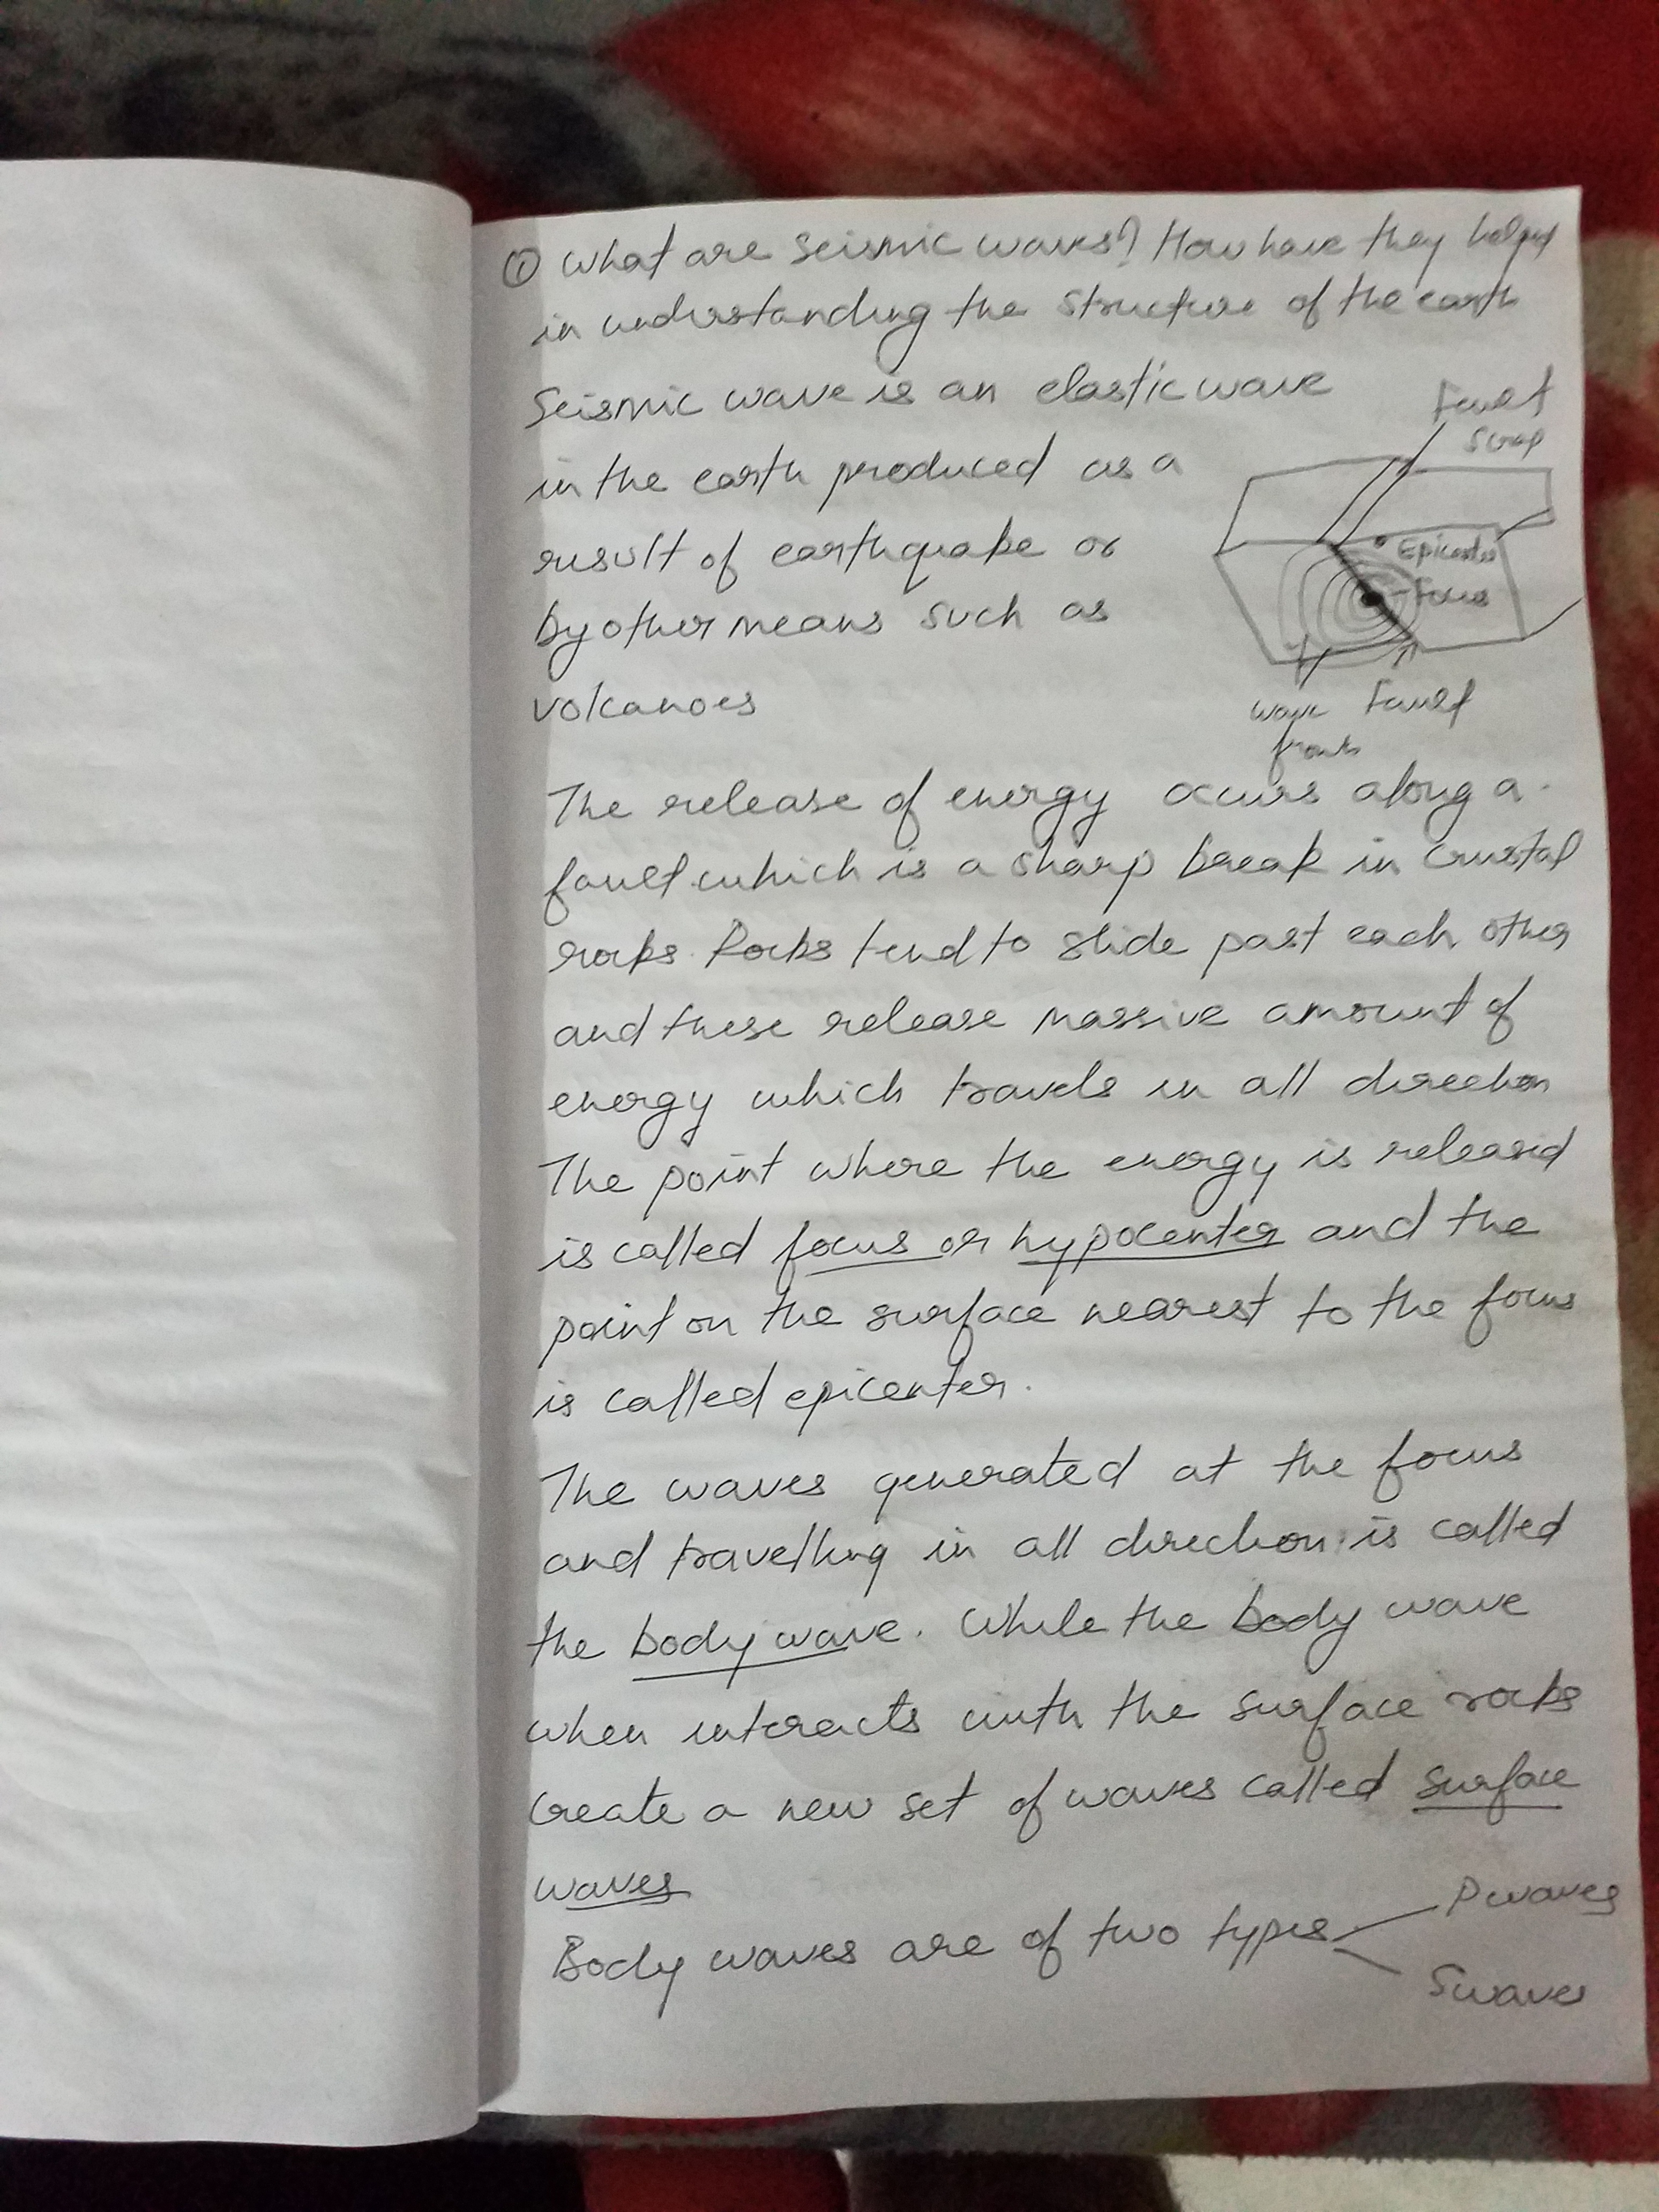 ① What are seismic waves? How have they helped
in understanding the structure of the earth
Seismic wave is an elastic wave
Fault
Scrap
in the earth produced as a
result of earthquake or
Epicenter
Focus
by other means such as
volcanoes
wave Fault
fronts
The release of energy occurs along a
fault which is a sharp break in crustal
rocks. Rocks tend to slide past each other
and these release massive amount of
energy which travels in all direction
The point where the energy is released
is called focus or hypocenter and the
point on the surface nearest to the focus
is called epicenter.
The waves generated at the focus
and travelling in all direction is called
the body wave. While the body wave
when interacts with the surface rocks
create a new set of waves called surface
waves
Body waves are of two types
P waves
S waves